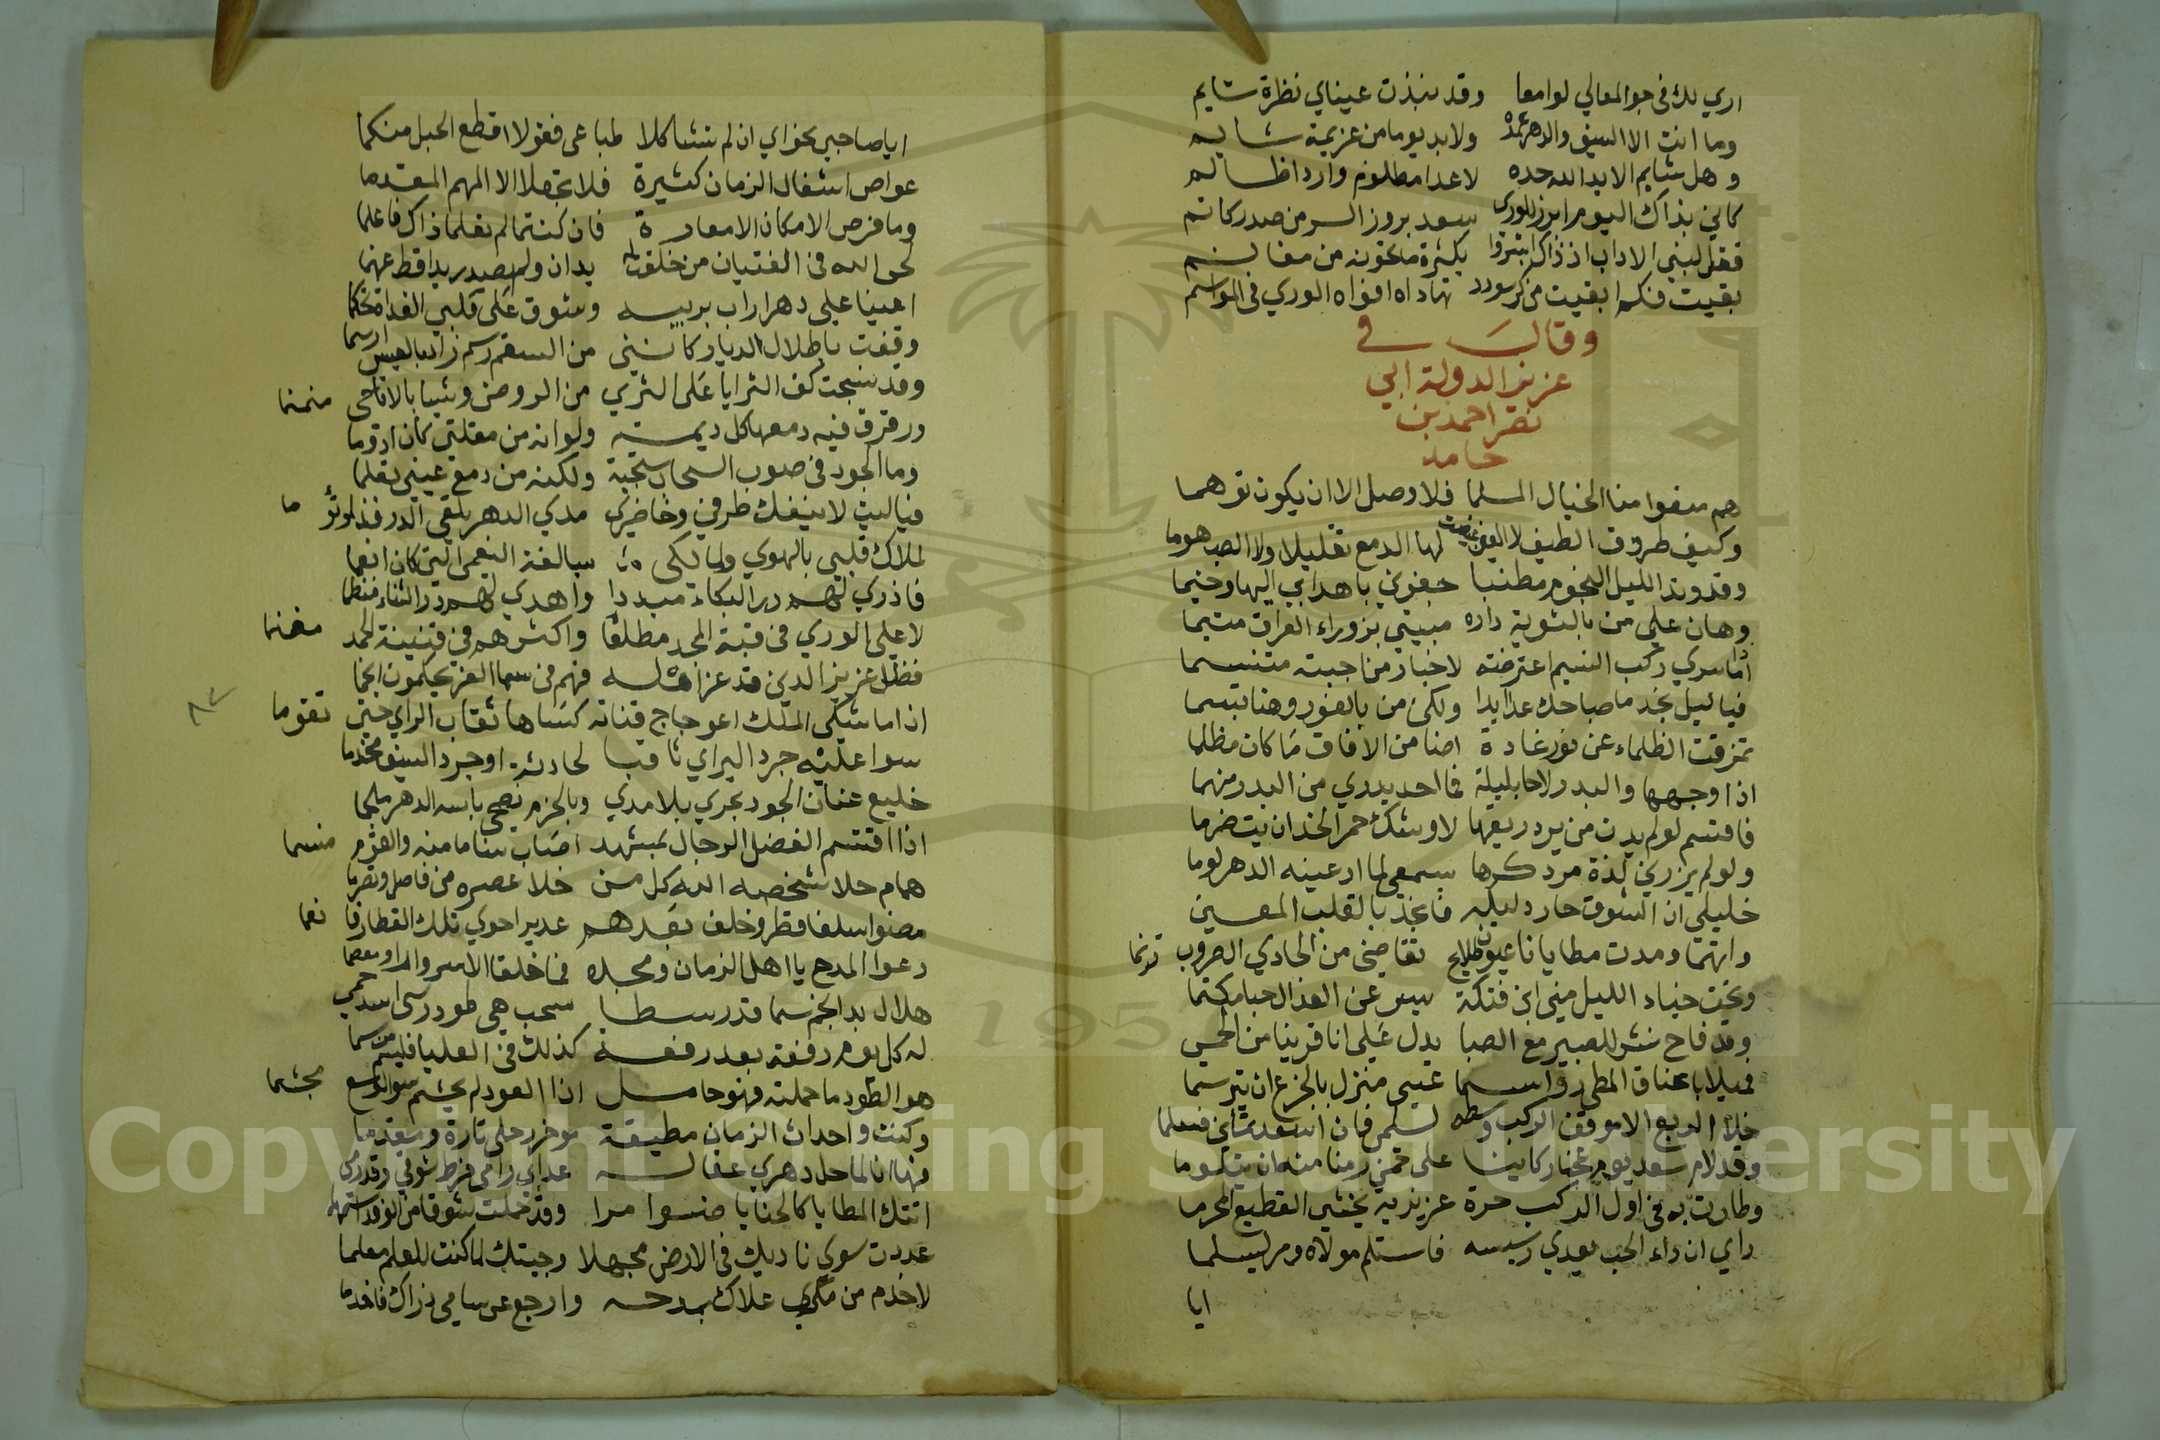 اري لك في جو المعالي لوامعا وقد نبذت عيناي نظرة شايم
وما انت الا السيف والدهر غمده ولا بد يوما من عزيمة شايم
وهل شايم الا يد الله حده لاعدا مظلوم واردا ظالم
كاني بذاك اليوم ابرز للورى سعد بروز السر من صدر كاتم
فقل لبني الاداب اذ ذاك ابشروا بكثرة ما تحوونه من مغانم
بقيت فكم ابقيت من ذكر سودد تهاداه افواه الوري في المواسم
وقال في
عزيز الدولة ابي
نصر احمد بن
حامد
هم منعوا منا الخيال المسلما فلا وصل الا ان يكون توهما
وكيف طروق الطيف لا العين غمضت لها الدمع تقليلا ولا الصب هوما
وقد وتد الليل النجوم مطنبا جفوني باهدابي اليها وخيما
وهان علي من بالثوية داره مبيتي بزوراء العراق متيما
اذا ما سري ركب النسيم اعترضته لاخبار من احببته متنسما
فيا ليل نجد ما صباحك عدا ايدا ولكن من بالغور وهنا تبسما
تمزقت الظلماء عن نور غادة اضا من الافاق ما كان مظلما
اذا وجهها والبدر لاحا بليلة فما احد يدري من البدر منهما
فاقسم لو لم يدن من برد ريقها لاوشك جمر الخد ان يتضرما
ولو لم يزرني لذة مر ذكرها سمعي لما ارعيته الدهر لوما
خليلي ان الشوق حار دليله فانجد بالقلب المعين
واتهما ومدت مطايانا عيون طلايح تقاضى من الحادي الطروب ترنما
وتحت خباء الليل مني ابن فتكة يسر عن العذال حبا مكتما
وقد فاح نشر للعبير مع الصبا يدل على انا قربنا من الحمى
فميلا باعناق المطي رواسما عسى منزل بالجزع ان يترسما
خلا الربع الا موقف الركب وسطه لسلمى فان اسعدتماني فسلما
وقد لام سعد يوم عجنا ركابنا على دمن رمنا منه ان يتلوما
وطارت به في اول الركب حرة عزيزيه يخشى القطيع المحرما
راي ان داء الحب يعدي رسيسه فاستلم مولاه ومر ليسلما
ايا
ايا صاحبي نجواي ان لم تشاكلا طباعى فقولا اقطع الحبل منكما
عواص اشغال الزمان كثيرة فلا تجعلا الا المهم المقدما
وما فرص الامكان الا معارة فان كنتما لم تعلما ذاك فاعلما
لحى الله في الفتيان من خلقت له يدان ولم يصدر يدا قط عنهما
اعينا على دهر اراب بريبه وشوق على قلبي الغداة تحكما
وقفت باطلال الديار كانني من السقم رسم زار بالعيس ارسما
وقد نسجت كف الثريا على الثري من الروض وشيا بالاقاحي منمنما
ورقرق فيه دمعها كل ديمة ولو انه من مقلتي كان ادوما
وما الجود في صوب السحاب سجية ولكنه من دمع عيني تعلما
فيا ليت لا ينفك طرفي وخاطري مدي الدهر يلقي الدر فذا وتؤما
لملاك قلبي بالهوي ولمالكي سالفة النعمى التي كان انعما
فاذري لهم در البكاء مبددا واهدي لهم در الثناء منظما
لاعلى الوري في قبة المجد مطلعا واكثرهم في قنية الحمد مغنما
فظل عزيز الدين قد عز اهله فهم في سما العز يحكمون انجما
اذا ما شكى الملك اعوجاج قناته كساها ثقاب الراي حتى تقوما
سوا عليه جرد الراي ثاقبا لحادثة او جرد السيف مخذما
خليع عنان الجود يجري بلا مدي وبالحزم يضحي باسه الدهر ملجما
اذا اقتسم الفضل الرجال بمشهد اصاب سناما منه والقوم منسما
همام حلا شخصه الله كل من خلا عصره من فاصل وتصرما
مضوا سلفا قطرا وخلف بعدهم غديرا حوي تلك القطار فافعما
دعوا المدح يا اهل الزمان ومجده فما خلقا الا سوارا ومعصما
هلال بدا نجم سما قدر سطا سحب همي طود رسى اسد حمى
له كل يوم رفعة بعد رفعة كذلك في العليا فليسم من سما
هو الطود ما حملته فهو حامل اذا العود لم يجشم سوى الوسع مجشما
وكنت واحداث الزمان مطيفة موخر رحلي تارة ومقدما
فها انا لما حل دهري عقاله عداي رامي فرط شوقي وقد رمى
اتتك المطايا كالحنايا ضوامرا وقد حملت شوقا من الوفد اسهما
عددت سوي ناديك في الارض مجهلا وجيتك لما كنت للعلم معلما
لاخدم من مكري علاك بمدحه وارجع عن سامي ذراك فاخدما